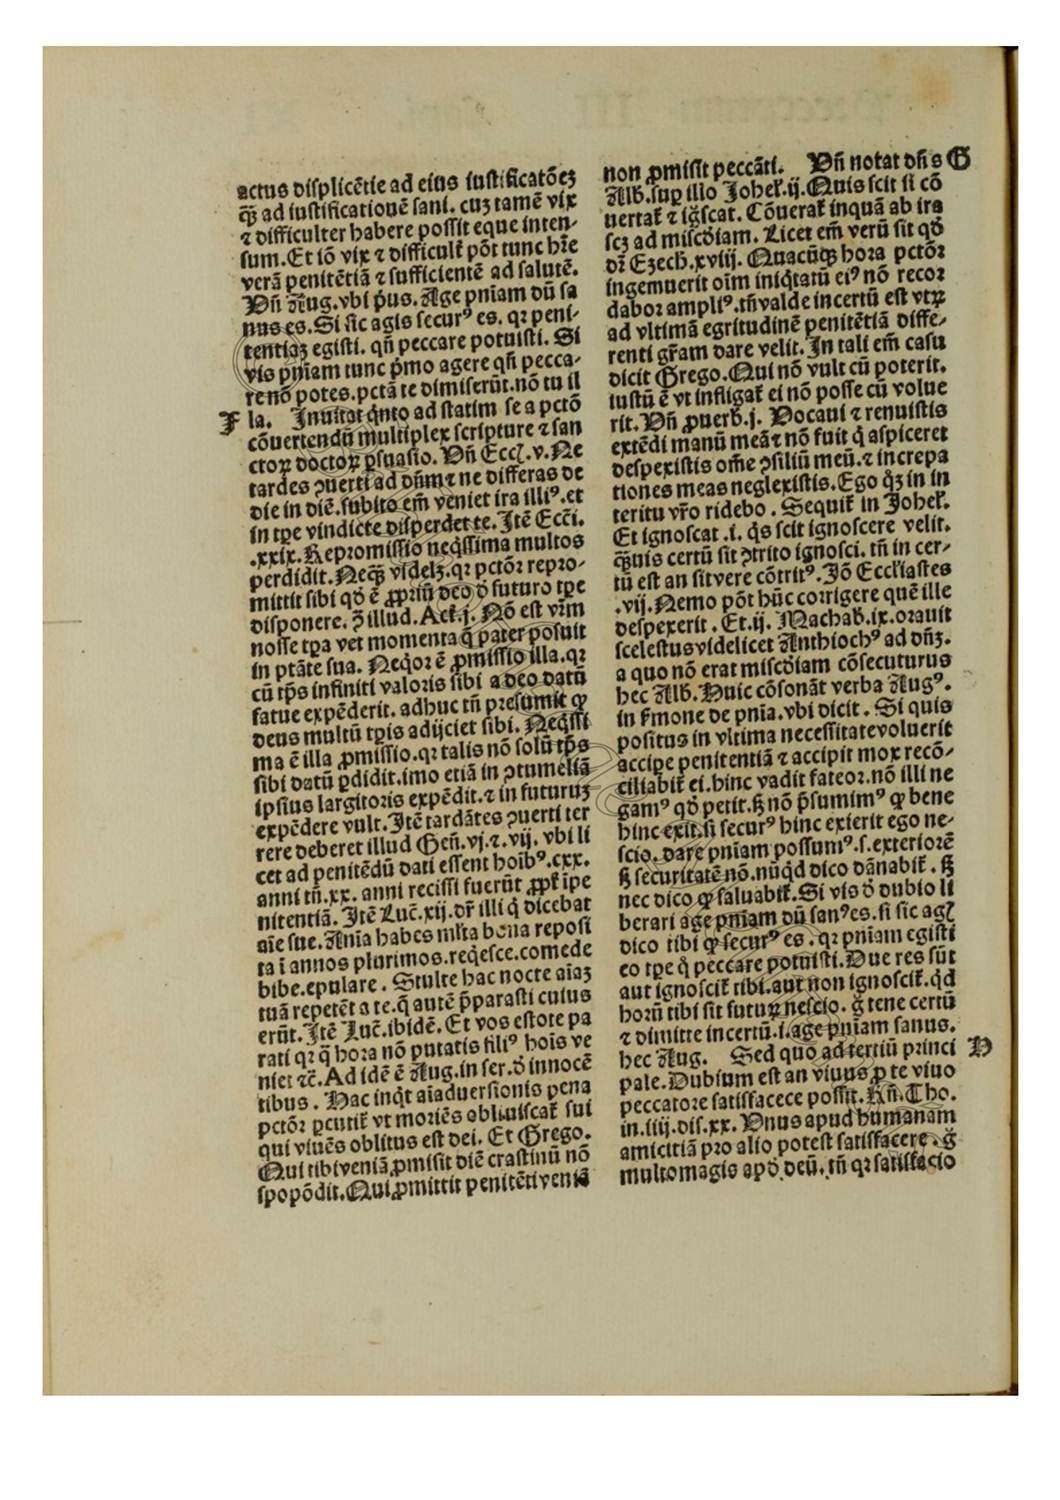 actus displicētie ad eius iustificatōeꝫ
q̄ꝫ ad iustificationē sani. cuꝫ tamē vix
⁊ difficulter habere possit eque inten⸗
sum. Et iō vix ⁊ difficulť pōt tunc hr̄e
verā penitētiā ⁊ sufficientē ad salutē.
Vñ Aug. vbi p̄us. Age pn̄iam dū sa
nus es. Si sic agis secur⁹ es. qꝛ peni⸗
tentiaꝫ egisti. qn̄ peccare potuisti. Si
vis pn̄iam tunc p̄mo agere qn̄ pecca⸗
re nō potes. pctā te dimiserūt. nō tu il
F la. Inuitat q̇nto ad statim se a pctō
cōuertendū multiplex scripture ⁊ san
ctoꝝ doctoꝝ ꝑsuasio. Vñ Eccɫ. v. Ne
tardes ꝯuerti ad dn̄m ⁊ ne differas de
die in diē. subito em̄ veniet ira illi⁹. et
in tꝑe vindicte disperdet te. Itē Ecc̄i.
.xxix. Repromissio neq̇ssima multos
perdidit. Neq̄ꝫ videlꝫ. qꝛ pctōꝛ repro⸗
mittit sibi qd̓ ē ꝓpriū deo d̓ futuro tꝑe
disponere. ꝯ̄ illud. Act̄. j. Nō est vr̄m
nosse tꝑa vel momenta q̄ pater posuit
in ptāte sua. Neq̇oꝛ ē ꝓmissio illa. qꝛ
cū tp̄s infiniti valoris sibi a deo datū
fatue expēderit. adhuc tn̄ presumit ꝙ
deus multū tꝑis adijciet sibi. Neq̇ssi
ma ē illa ꝓmissio. qꝛ talis nō solū tp̄s
sibi datū ꝑdidit. imo etiā in ꝯtumeliā
ipsius largitoris expēdit. ⁊ in futuruꝫ
expēdere vult. Itē tardātes ꝯuerti ter
rere deberet illud Geñ. vj. ⁊. vij. vbi li
cet ad penitēdū dati essent hoīb⁹. cxx.
anni tn̄. xx. anni recissi fuerūt ꝓpť īpe
nitentiā. Itē Luc̄. xij. dr̄ illi q̇ dicebat
aīe sue. Aīa habes ml̓ta bona reposi
ta ī annos plurimos. reqesce. comede
bibe. epulare. Stulte hac nocte aīaꝫ
tuā repetēt a te. q̄ autē p̄parasti cuius
erūt. Itē Luc̄. ibidē. Et vos estote pa
rati qꝛ q̄ hora nō putatis fili⁹ hoīs ve
niet ⁊c̄. Ad idē ē Aug. in ser. d̓ innocē
tibus. Hac inq̇t aīaduersionis pena
pctōꝛ ꝑcutiť vt moriēs obliuiscať sui
qui viuēs oblitus est dei. Et Grego.
Qui tibi veniā ꝓmisit diē crastinū nō
spopōdit. Qui ꝓmittit penitēti veniā
non ꝓmisit peccāti. Vñ notat dn̄s G
Alb. suꝑ illo Joheɫ. ij. Quis scit si cō
uertať ⁊ ig̓scat. Cōuerať inquā ab ira
scꝫ ad misc̓diam. Licet em̄ verū sit qd̓
dr̄ Ezech. xviij. Quacūqꝫ hora pctōꝛ
ingemuerit oīm iniq̇tatū ei⁹ nō recoꝛ
dabor ampli⁹. tn̄ valde incertū est vtꝝ
ad vltimā egritudinē penitētiā diffe⸗
renti gr̄am dare velit. In tali em̄ casu
dicit Grego. Qui nō vult cū poterit.
iustū ē vt infligať ei nō posse cū volue
rit. Vñ ꝓuerb. j. Vocaui ⁊ renuistis
extēdi manū meā ⁊ nō fuit q̇ aspiceret
despexistis om̄e ꝯsiliū meū. ⁊ increpa
tiones meas neglexistis. Ego q̇ꝫ in in
teritu vr̄o ridebo. Sequiť in Joheɫ.
Et ignoscat .i. q̇s scit ignoscere velit.
q̄ꝫuis certū sit ꝯtrito ignosci. tn̄ in cer⸗
tū est an sit vere cōtrit⁹. Iō Eccl̓iastes
.vij. Nemo pōt hūc corrigere quē ille
despexerit. Et. ij. Machab. ix. orauit
scelestus videlicet Anthioch⁹ ad dn̄ꝫ.
a quo nō erat misc̓diam cōsecuturus
hec Alb. Huic cōsonāt verba Aug⁹.
in ẜmone de pn̄ia. vbi dicit. Si quis
positus in vltima necessitate voluerit
accipe penitentiā ⁊ accipit mox recō⸗
ciliabiť ei. hinc vadit fateoꝛ. nō illi ne
gam⁹ qd̓ petit. ẜꝫ nō p̄sumim⁹ ꝙ bene
hinc exit. si secur⁹ hinc exierit ego ne⸗
scio. dare pn̄iam possum⁹. s. exteriorē
ẜꝫ securitatē nō. nūq̇d dico dānabiť. ẜꝫ
nec dico ꝙ saluabiť. Si vis d̓ dubio li
berari age pn̄iam dū san⁹ es. si sic agꝭ
dico tibi ꝙ secur⁹ es. qꝛ pn̄iam egisti
eo tꝑe q̇ peccare potuisti. Due res sūt
aut ignosciť tibi. aut non ignosciť. q̇d
horū tibi sit futuꝝ nescio. g̊ tene certū
⁊ dimitte incertū. i. age pn̄iam sanus.
hec Aug. Sed quo ad tertiū princi H
pale. Dubium est an viuus ꝓ te viuo
peccatore satisfacece possit. Rñ. Tho.
in. iiij. dis. xx. Vnus apud humanam
amicitiā pro alio potest satisfacere. g̊
multomagis apd̓ deū. tn̄ qꝛ satisfacio